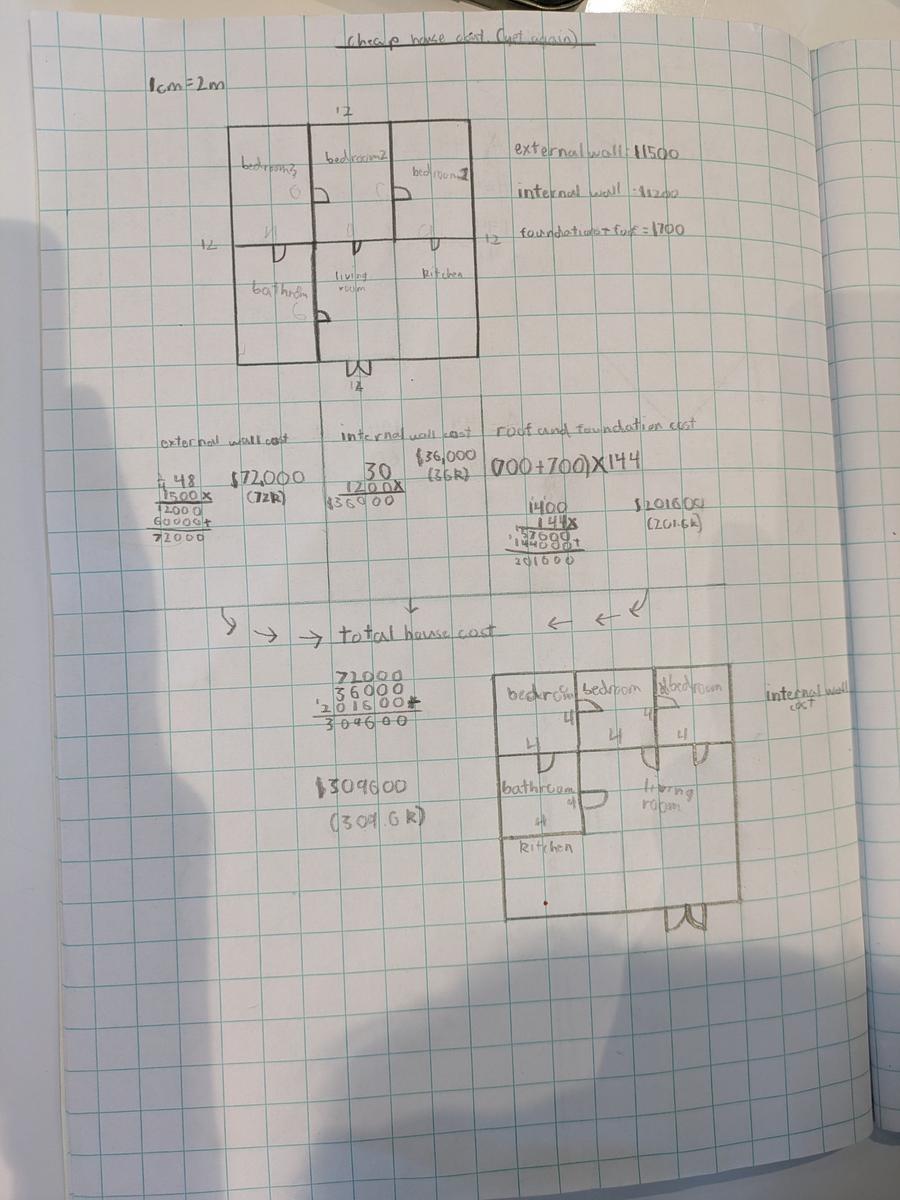 cheap house cost (yet again)
1cm=2m
12
bedroom3
bedroom2
bedroom1
external wall: $1500
internal wall : $1200
6
6
foundation + roof = $700
4
4
4
12
12
living
room
kitchen
bathroom
6
12
external wall cost
internal wall cost
roof and foundation cost
48
1500x
12000
60000+
72000
$72,000
(72k)
30
1200x
$36000
$36,000
(36k)
(700+700)X144
1400
144x
57600
144000+
201600
$201600
(201.6k)
total house cost
72000
36000
201600+
309600
$309600
(309.6k)
bedroom
bedroom
bedroom
internal wall
cost
4
4
4
4
4
bathroom
4
living
room
4
kitchen